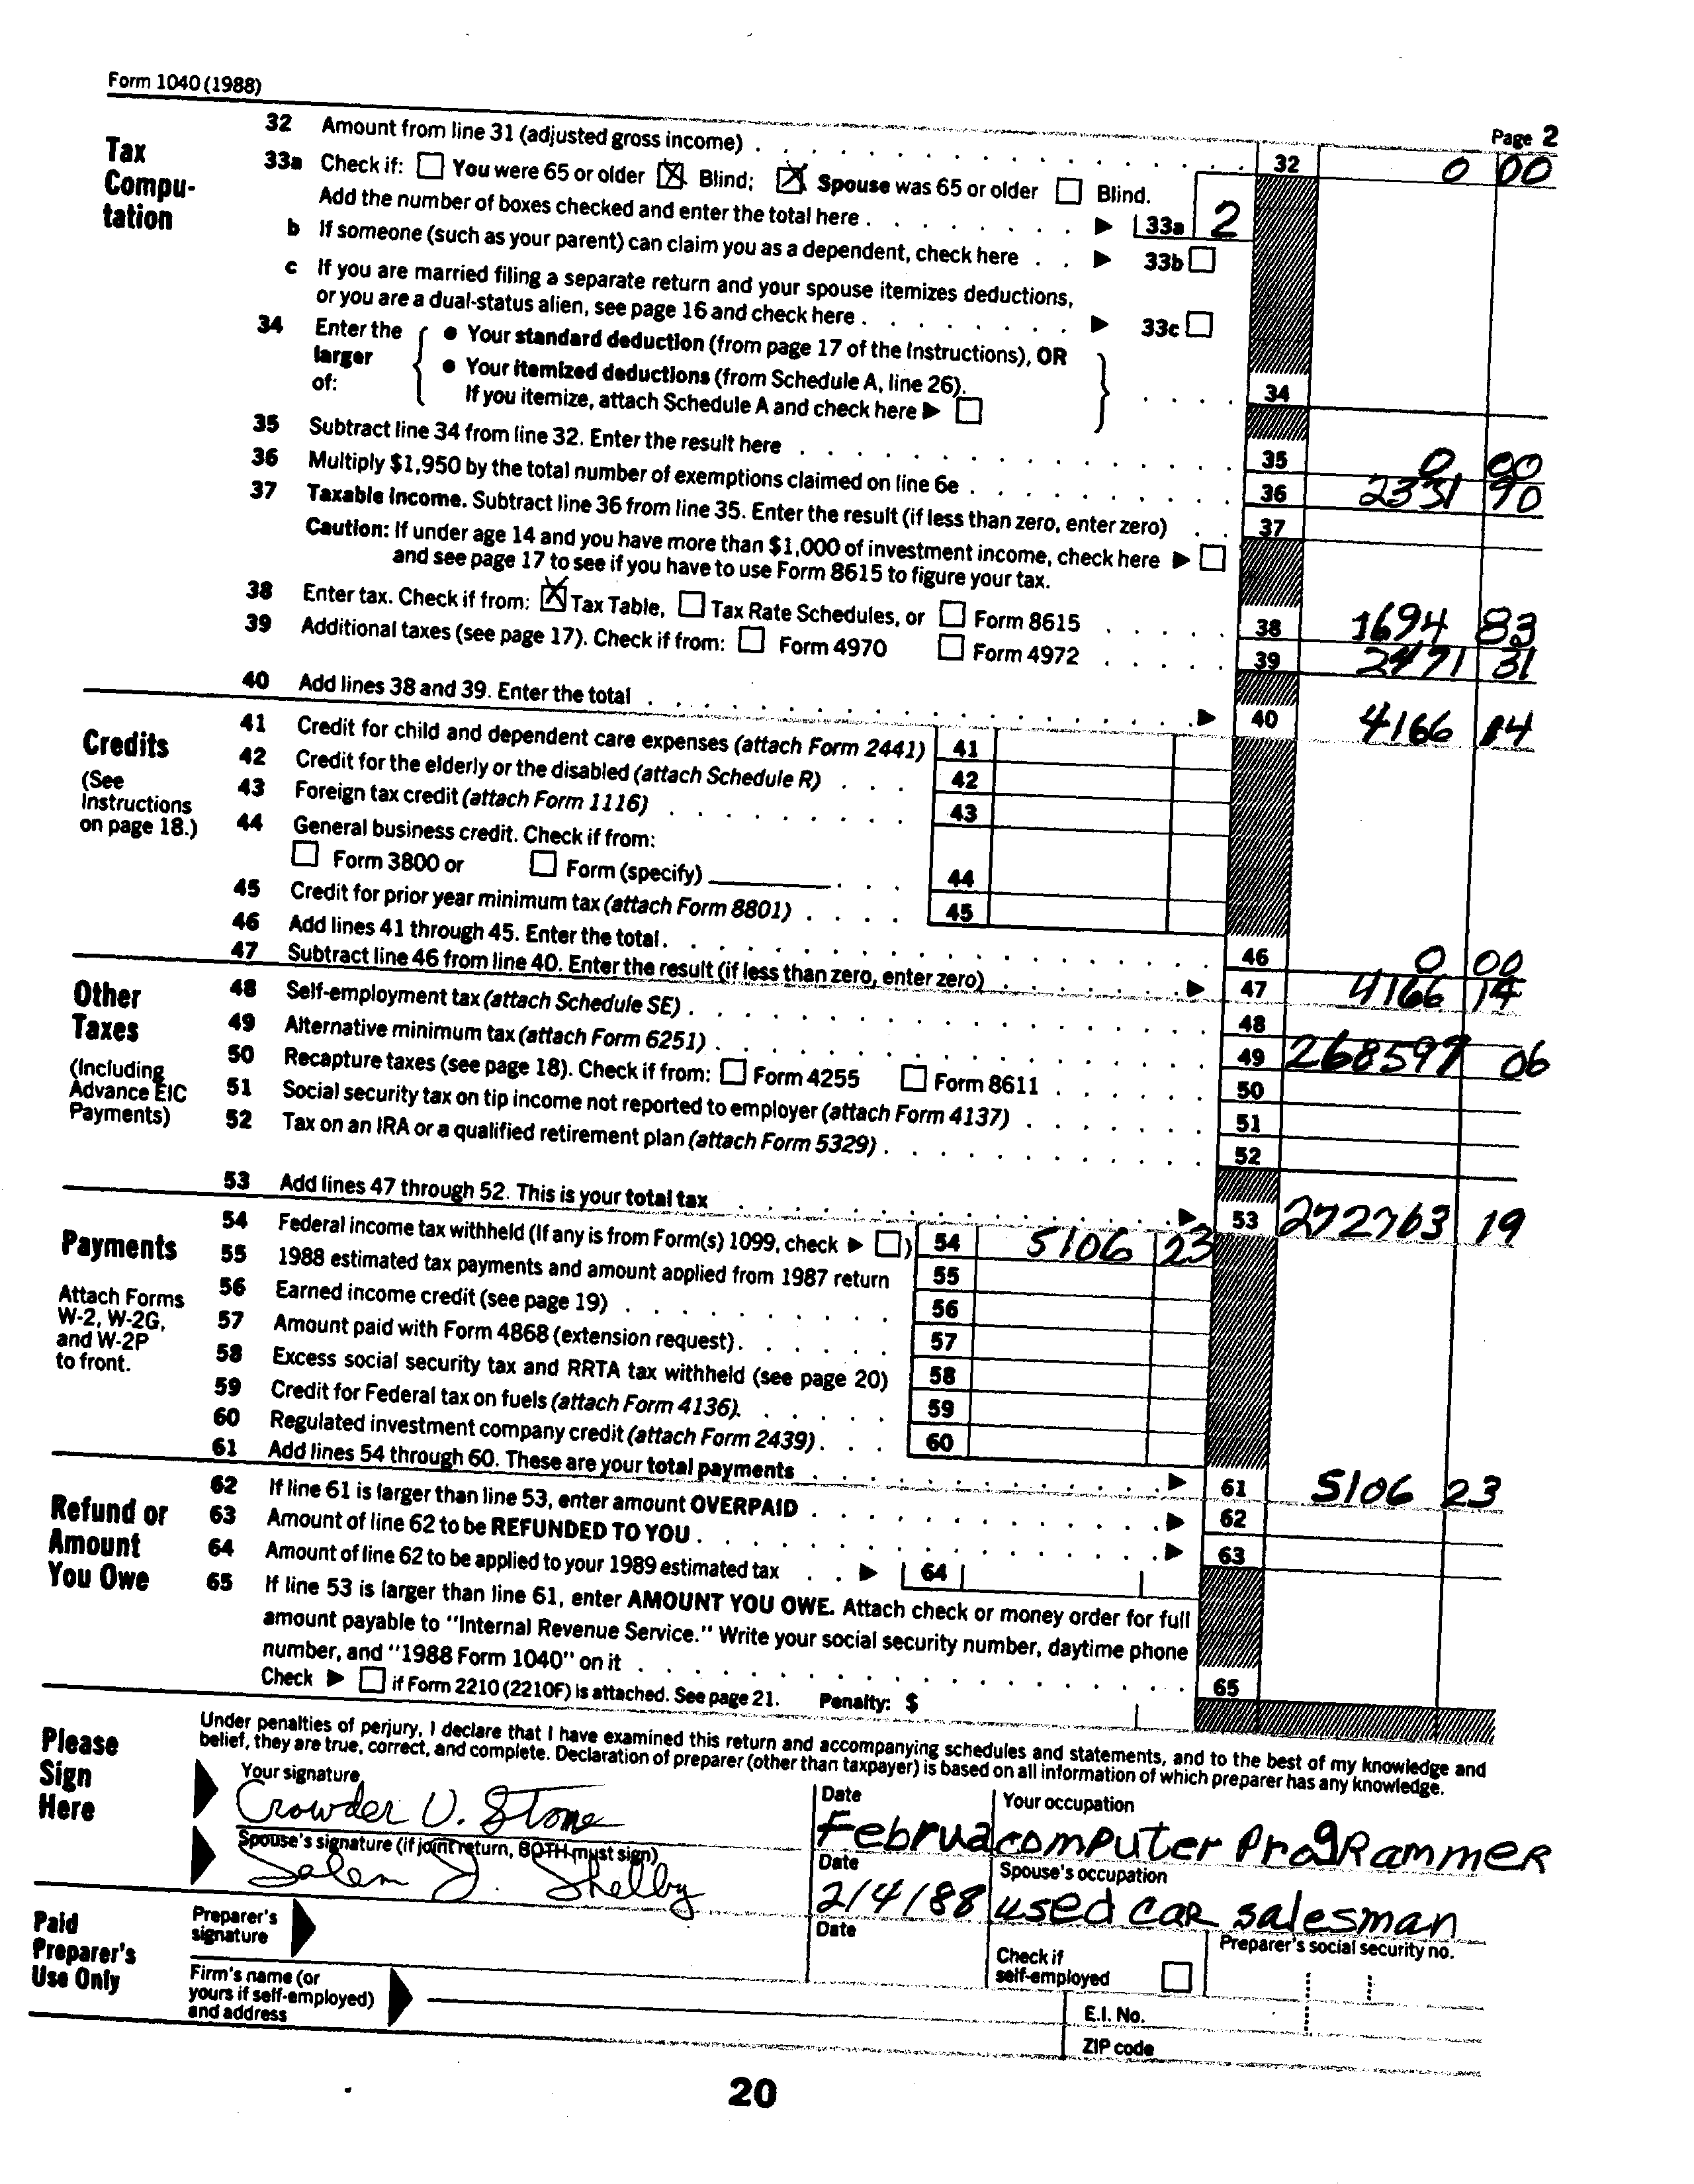 Form 1040 (1988)
Page 2
Tax Compu-tation
32 Amount from line 31 (adjusted gross income) 32 0 00
33a Check if: ☐ You were 65 or older ☒ Blind; ☒ Spouse was 65 or older ☐ Blind.
Add the number of boxes checked and enter the total here 33a 2
b If someone (such as your parent) can claim you as a dependent, check here 33b ☐
c If you are married filing a separate return and your spouse itemizes deductions,
or you are a dual-status alien, see page 16 and check here 33c ☐
34 Enter the larger of:
• Your standard deduction (from page 17 of the Instructions), OR
• Your itemized deductions (from Schedule A, line 26).
If you itemize, attach Schedule A and check here ☐ 34
35 Subtract line 34 from line 32. Enter the result here 35 0 00
36 Multiply $1,950 by the total number of exemptions claimed on line 6e 36 2331 90
37 Taxable income. Subtract line 36 from line 35. Enter the result (if less than zero, enter zero) 37
Caution: If under age 14 and you have more than $1,000 of investment income, check here ☐
and see page 17 to see if you have to use Form 8615 to figure your tax.
38 Enter tax. Check if from: ☒ Tax Table, ☐ Tax Rate Schedules, or ☐ Form 8615 38 1694 83
39 Additional taxes (see page 17). Check if from: ☐ Form 4970 ☐ Form 4972 39 2471 31
40 Add lines 38 and 39. Enter the total 40 4166 14
Credits
(See Instructions on page 18.)
41 Credit for child and dependent care expenses (attach Form 2441) 41
42 Credit for the elderly or the disabled (attach Schedule R) 42
43 Foreign tax credit (attach Form 1116) 43
44 General business credit. Check if from:
☐ Form 3800 or ☐ Form (specify) 44
45 Credit for prior year minimum tax (attach Form 8801) 45
46 Add lines 41 through 45. Enter the total 46 0 00
47 Subtract line 46 from line 40. Enter the result (if less than zero, enter zero) 47 4166 14
Other Taxes
(Including Advance EIC Payments)
48 Self-employment tax (attach Schedule SE) 48
49 Alternative minimum tax (attach Form 6251) 49 268597 06
50 Recapture taxes (see page 18). Check if from: ☐ Form 4255 ☐ Form 8611 50
51 Social security tax on tip income not reported to employer (attach Form 4137) 51
52 Tax on an IRA or a qualified retirement plan (attach Form 5329) 52
53 Add lines 47 through 52. This is your total tax 53 272763 19
Payments
Attach Forms W-2, W-2G, and W-2P to front.
54 Federal income tax withheld (If any is from Form(s) 1099, check ☐) 54 5106 23
55 1988 estimated tax payments and amount applied from 1987 return 55
56 Earned income credit (see page 19) 56
57 Amount paid with Form 4868 (extension request) 57
58 Excess social security tax and RRTA tax withheld (see page 20) 58
59 Credit for Federal tax on fuels (attach Form 4136) 59
60 Regulated investment company credit (attach Form 2439) 60
61 Add lines 54 through 60. These are your total payments 61 5106 23
Refund or Amount You Owe
62 If line 61 is larger than line 53, enter amount OVERPAID 62
63 Amount of line 62 to be REFUNDED TO YOU 63
64 Amount of line 62 to be applied to your 1989 estimated tax 64
65 If line 53 is larger than line 61, enter AMOUNT YOU OWE. Attach check or money order for full
amount payable to "Internal Revenue Service." Write your social security number, daytime phone
number, and "1988 Form 1040" on it 65
Check ☐ if Form 2210 (2210F) is attached. See page 21. Penalty: $
Please Sign Here
Under penalties of perjury, I declare that I have examined this return and accompanying schedules and statements, and to the best of my knowledge and
belief, they are true, correct, and complete. Declaration of preparer (other than taxpayer) is based on all information of which preparer has any knowledge.
Your signature Date Your occupation
Crowder U. Stone Februa computer Programmer
Spouse's signature (if joint return, BOTH must sign) Date Spouse's occupation
Salem J. Shelby 2/4/88 used car salesman
Paid Preparer's Use Only
Preparer's signature Date Check if self-employed ☐ Preparer's social security no.
Firm's name (or yours if self-employed) and address
E.I. No.
ZIP code
20